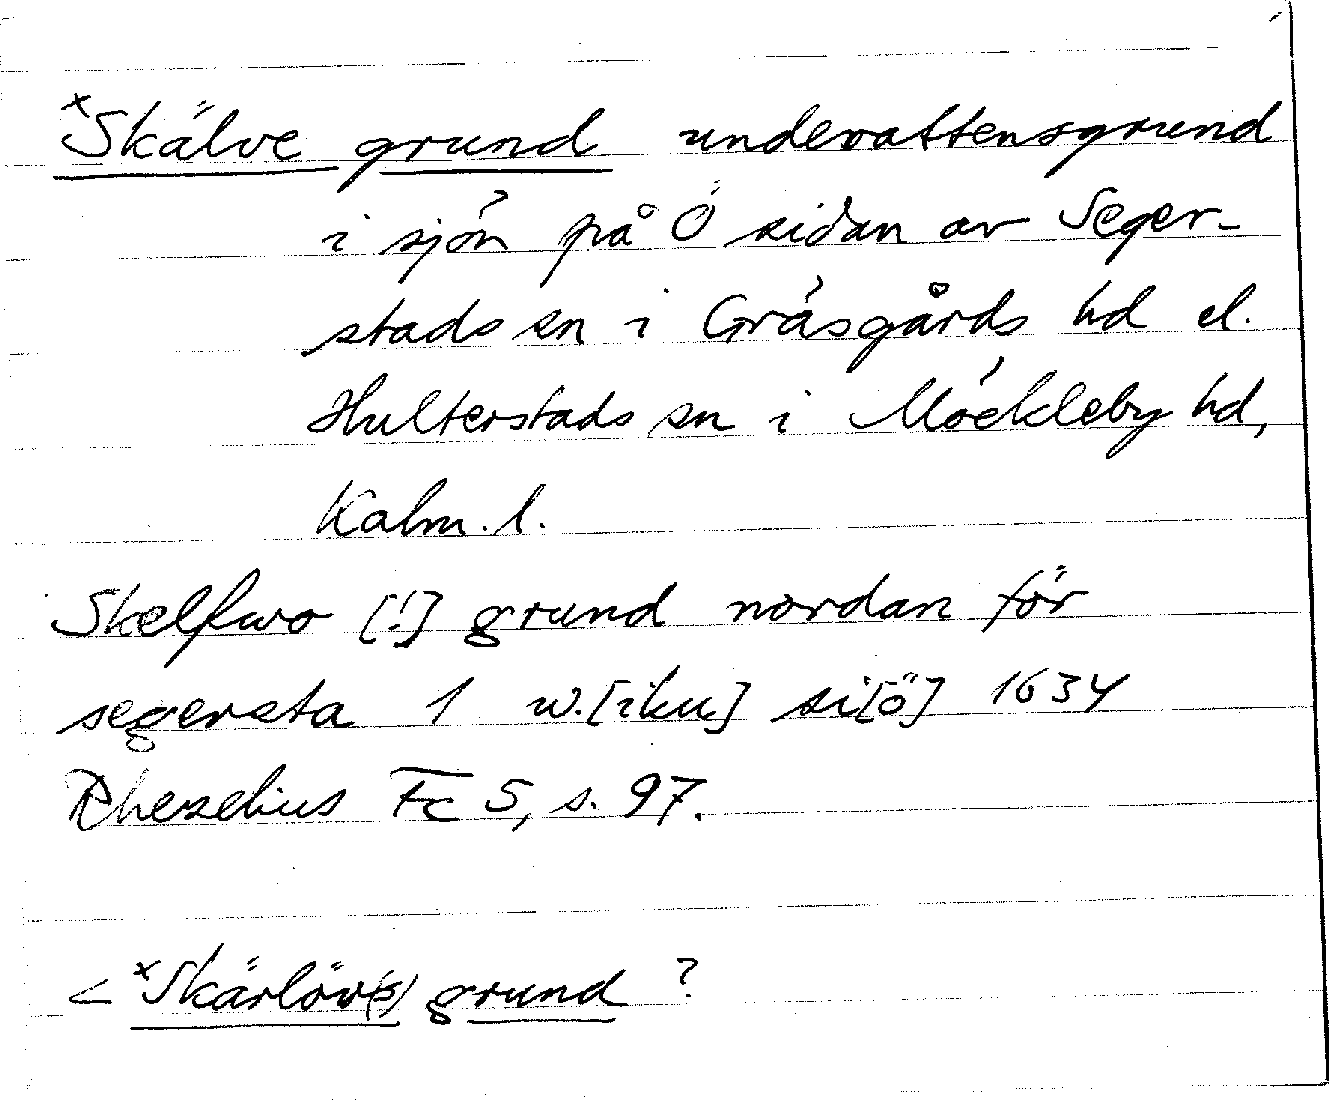 ˣSkälve grund undervattensgrund
i sjön på Ö sidan av Seger-
stads sn i Gräsgårds hd el.
Hulterstads sn i Möckleby hd,
Kalm. l.
Skelfwo [!] grund nordan för
segersta 1 w.[iku] si[ö] 1634
Rhezelius Fc 5, s. 97.
< ˣSkärlöv(s) grund ?